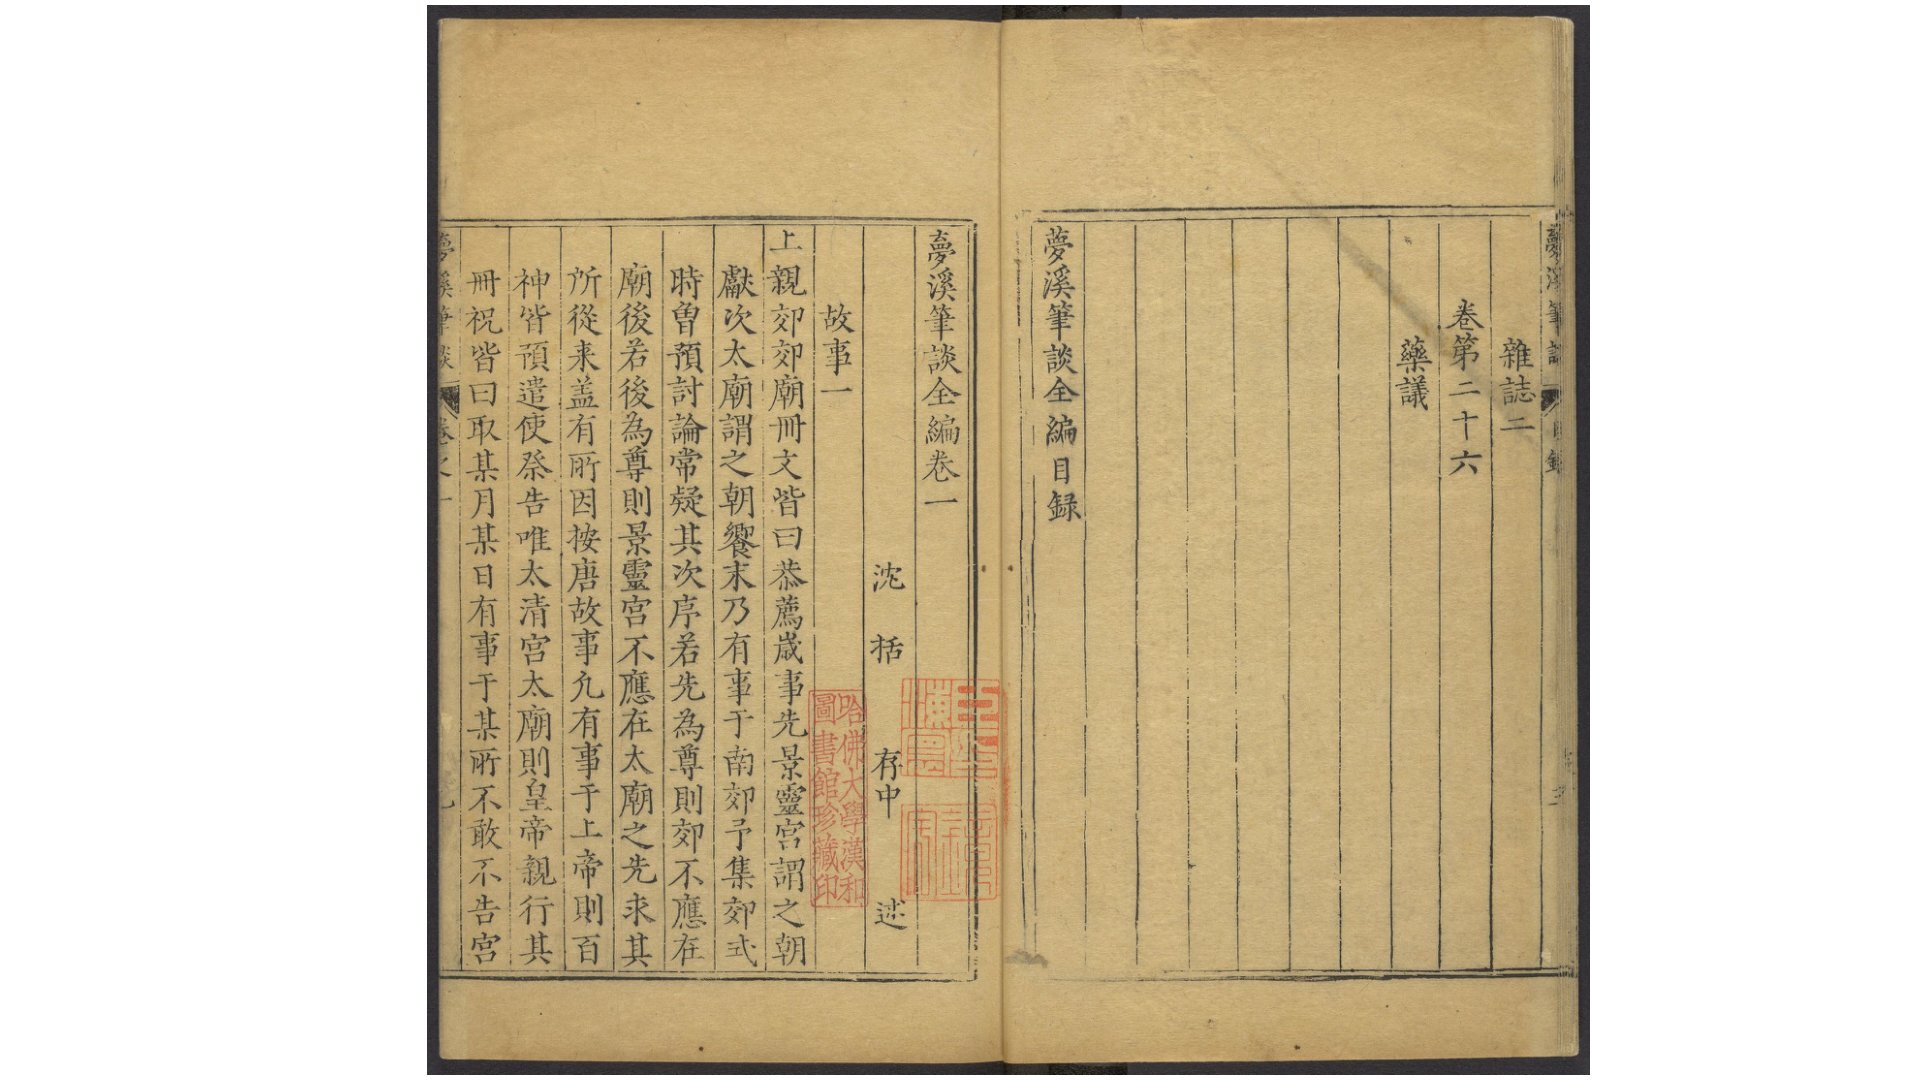 雜誌二
卷第二十六
藥議
夢溪筆談全編目録
夢溪筆談全編卷一
沈括存中述
故事一
上親郊郊廟冊文皆曰恭薦歲事先景靈宮謂之朝
獻次太廟謂之朝饗末乃有事于南郊予集郊式
時曽預討論常疑其次序若先為尊則郊不應在
廟後若後為尊則景靈宮不應在太廟之先求其
所從来盖有所因按唐故事凢有事于上帝則百
神皆預遣使祭告唯太清宮太廟則皇帝親行其
冊祝皆曰取某月某日有事于某所不敢不告宮
哈佛大學漢和
圖書館珍藏印